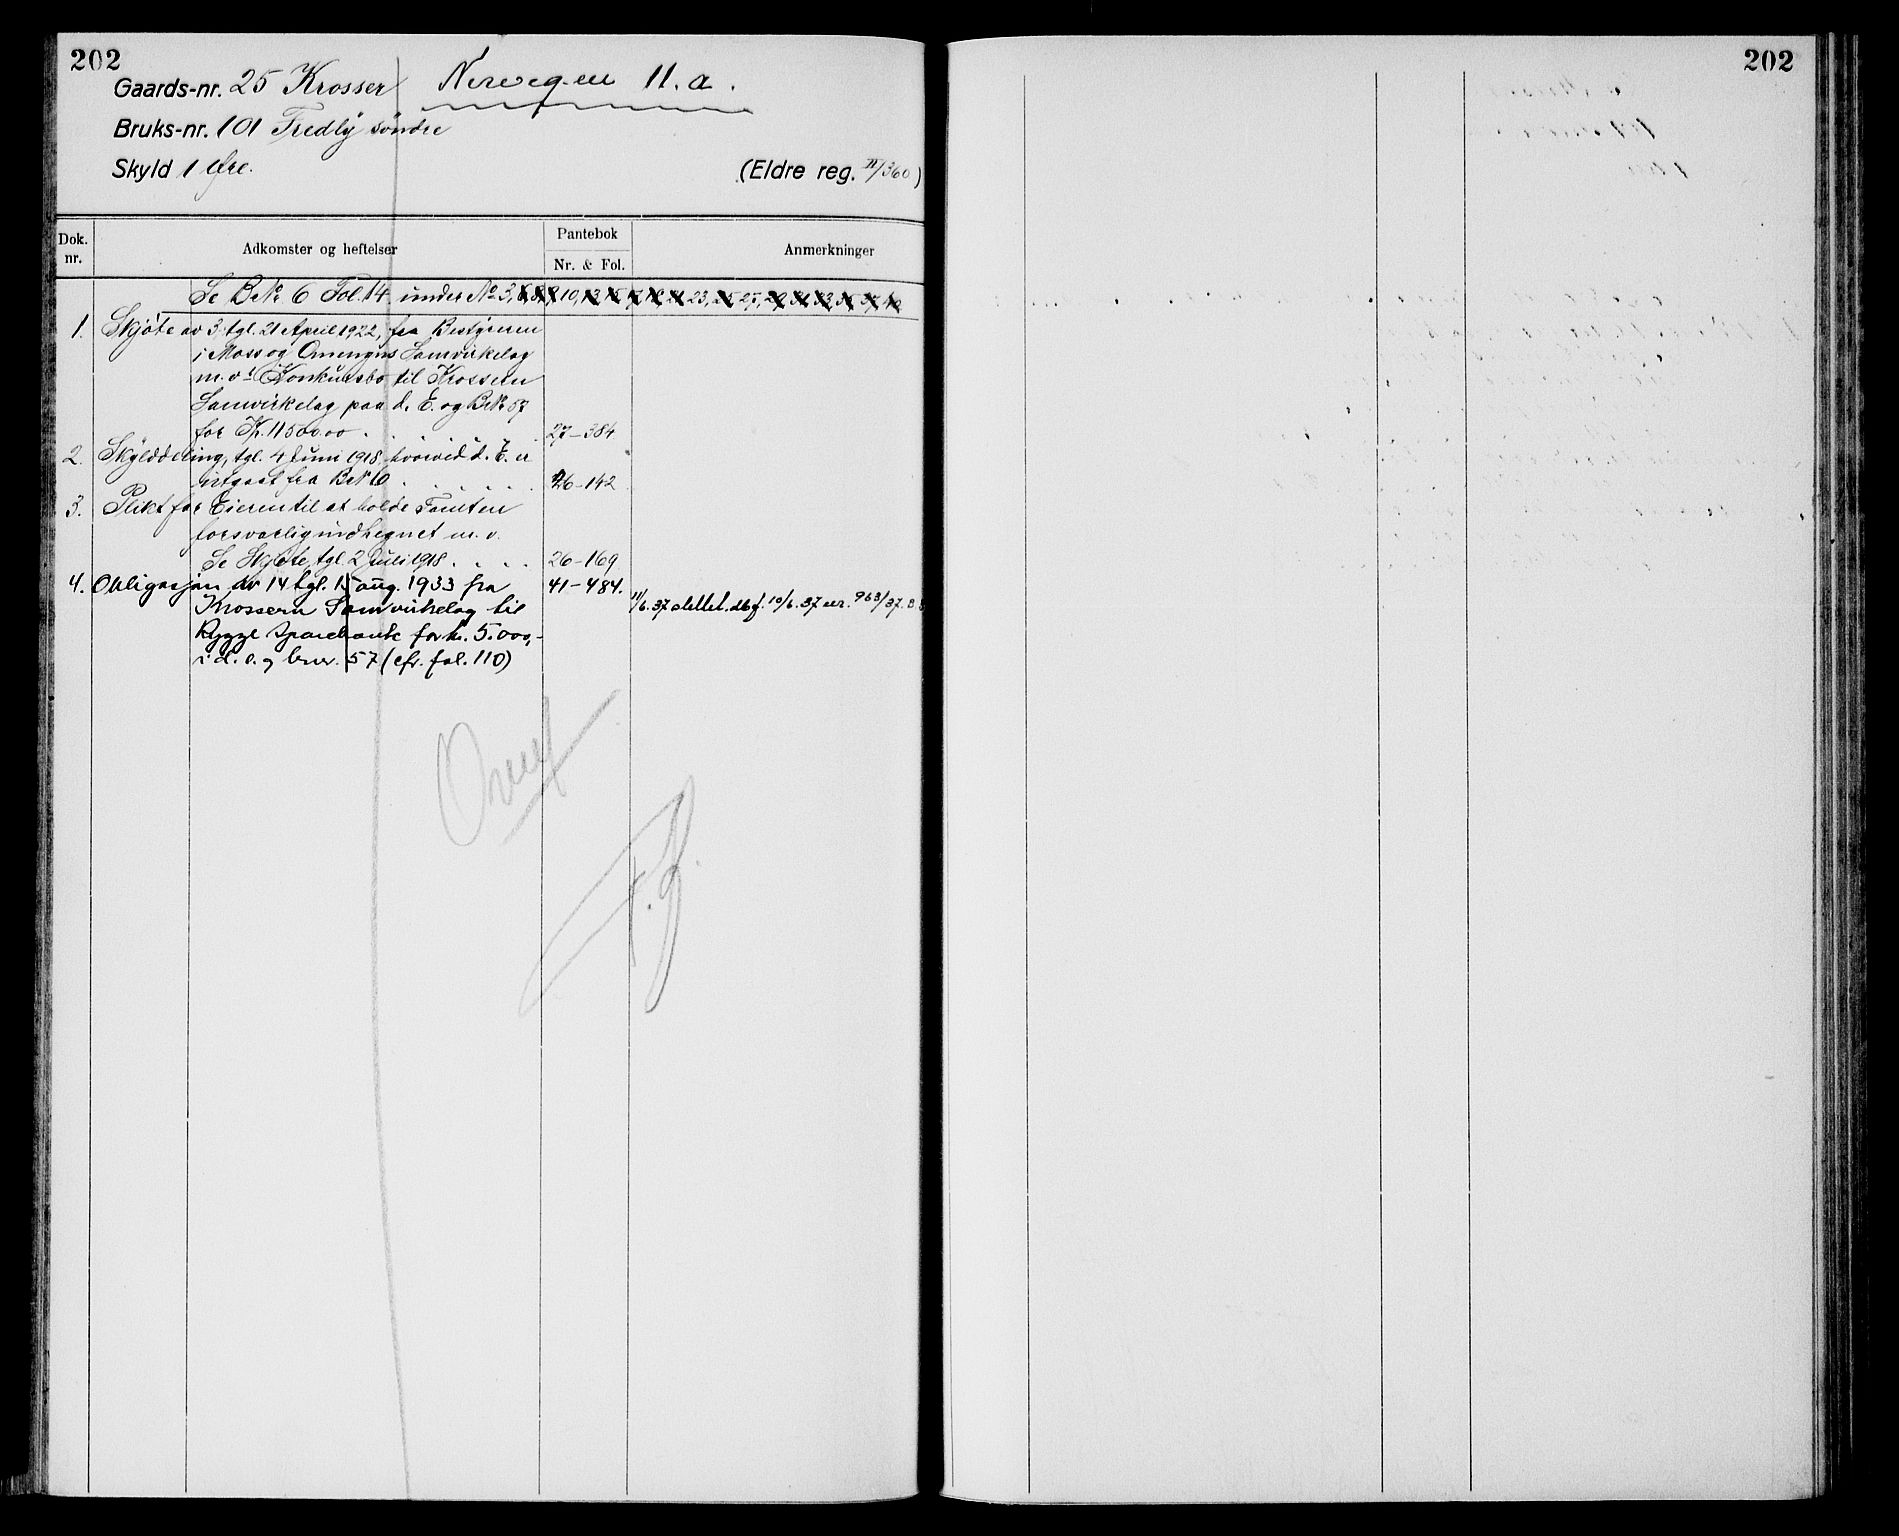 202
Gaards-nr. 25 Krosser
Nervegen 11.a.
Bruks-nr. 101 Fredly søndre
Skyld 1 Øre.
(Eldre reg. II/360)
Dok. nr.
Adkomster og heftelser
Pantebok
Nr. & Fol.
Anmerkninger
Se BNr. 6 Fol. 14 under No 3, 10, 23, 27,
1. Skjøte av 3. tgl. 21 April 1922, fra Bestyreren
i Moss og Omengns Samvirkelag
m. v. Konkursbo til Krossern
Samvirkelag paa d. E. og BNr 57
for Kr. 11500.00 . . . . 27-384
2. Skylddeling, tgl. 4 Juni 1918 hvorved d. E. er
utgaat fra BNr 6 . . . . . 26-142
3. Plikt for Eieren til at holde Tomten
forsvarlig indhegnet m. v.
Se Skjøte, tgl. 2 Juli 1918 . . . . 26-169
4. Obligasjon av 14 tgl. 15 aug. 1933 fra 41-484.
Krossern Samvirkelag til
Rygge Sparebank for kr. 5.000,-
i d. e. og bnr. 57 (cfr. fol. 110)
11/6.37 slettet. dbf. 10/6.37 nr. 963/37.
F.B.
202